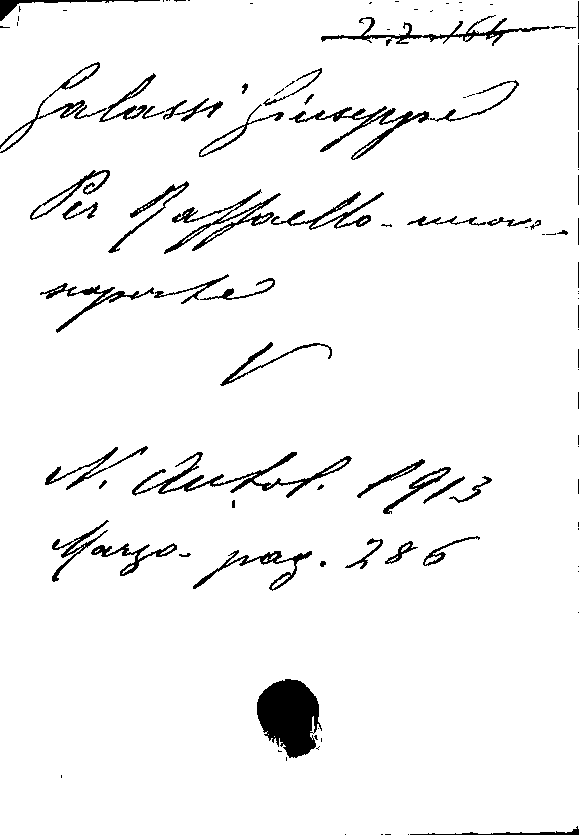 2.2.164
Galassi Giuseppe
Per Raffaello - nuove
scoperte
V
N. Antol. 1913
Marzo - pag. 286